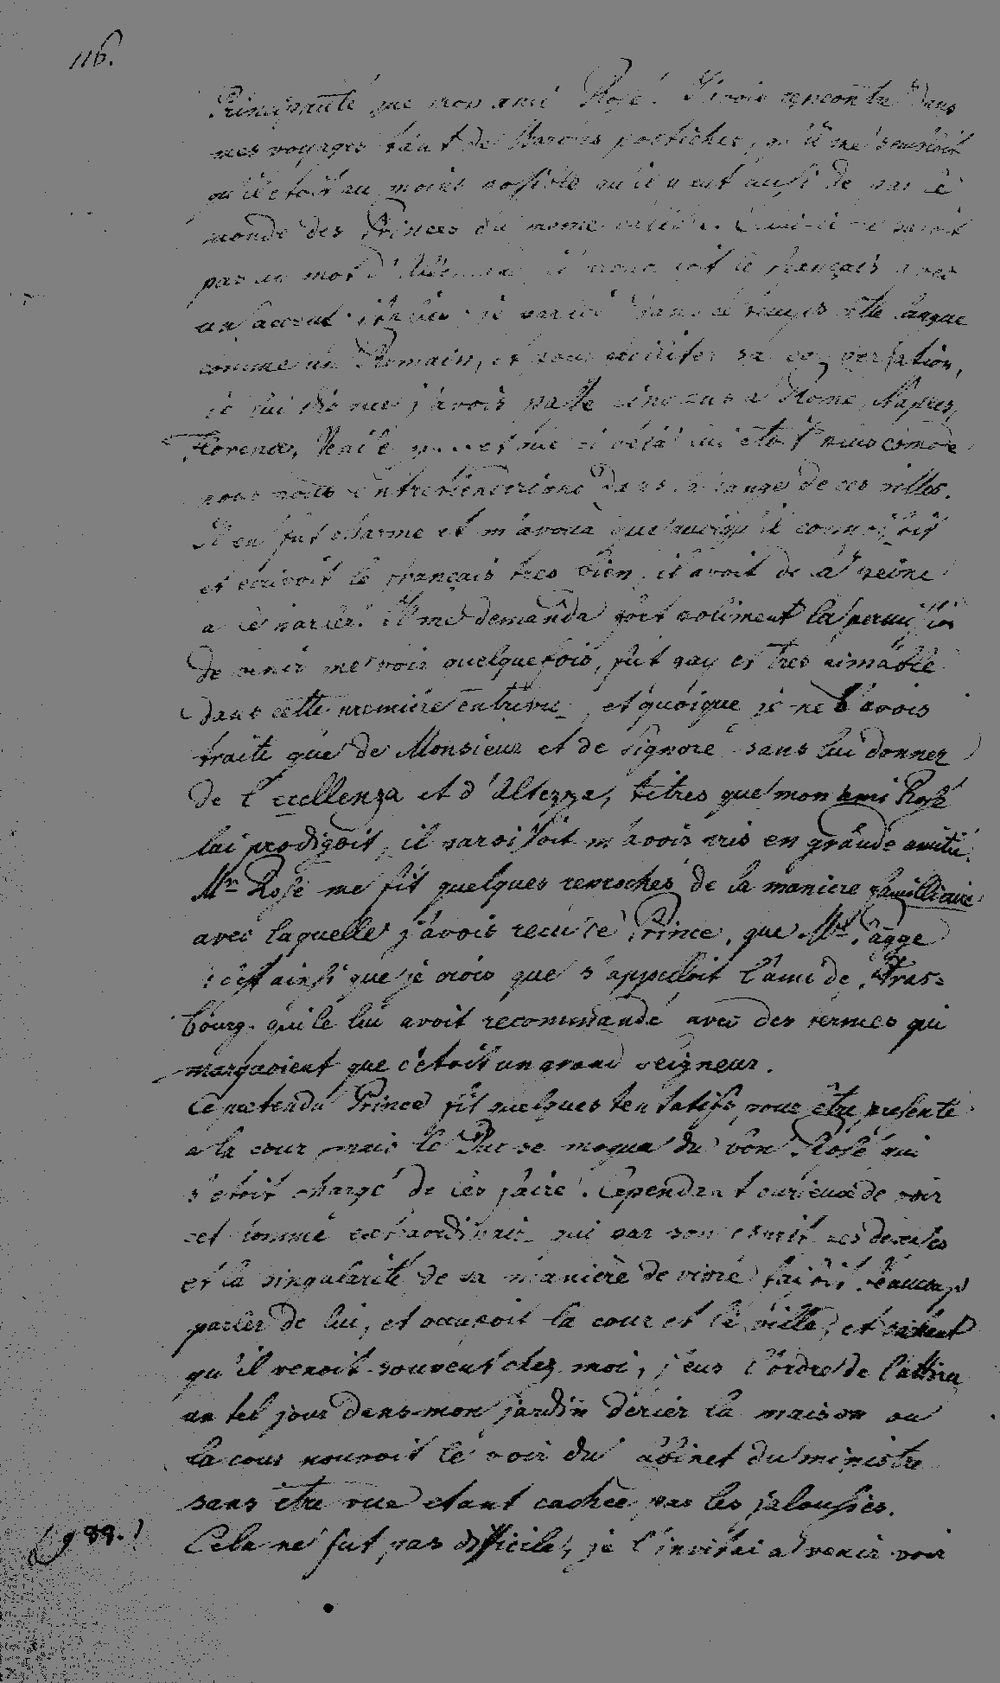 116.
Principauté que mon ami Rosé. J'avois rencontré dans
mes voyages tant de Barons postiches, qu'il me sembloit
qu'il etoit au moins possible qu'il y eut aussi de par le
monde des Princes du meme
pas un mot d'Allemand, le français avec
un accent je parlois dans ce temps cette langue
comme un Romain, et pour faciliter sa conversation,
je lui dis que j'avois passé cinq ans a Rome, Naples,
Florence, et que si cela lui etoit plus comode
nous nous entretiendrions dans la langue de ces villes.
Il en fut charmé et m'avoua que quoiqu'il connoissoit
et ecrivoit le français tres bien, il avoit de la peine
a le parler. Il me demanda fort poliment la permission
de venir me voir quelquefois, fut gay et tres aimable
dans cette premiere entrevue, et quoique je ne l'avois
traité que de Monsieur et de Signore sans lui donner
de l'eccellenza et d'Altezza, titres que mon ami Rosé
lui prodigoit, il paroissoit m'avoir pris en grande amitié.
Mr. Rosé me fit quelques reproches de la maniere familliaire
avec laquelle j'avois recu ce Prince, que Mr.
c'est ainsi que je crois que s'appelloit l'ami de Stras=
bourg, qui le lui avoit recommandé avec des termes qui
marquoient que c'etoit un grand seigneur.
Ce pretendu Prince fit quelques tentatifs pour être presenté
a la cour mais le Duc se moqua du bon Rosé qui
s'etoit chargé de les faire. Cependant curieux de voir
cet homme extraordinaire qui par son esprit
et la singularité de sa maniere de vivre faisoit beaucoup
parler de lui, et occupoit la cour et la ville, et sachant
qu'il venoit souvent chez moi, j'eus l'ordre de l'attirer
un tel jour dans mon jardin derier la maison ou
la cour pouvoit le voir du cabinet du ministre
sans etre vue etant cachée par les jalousies.
Cela ne fut pas difficile, je l'invitai a venir voir